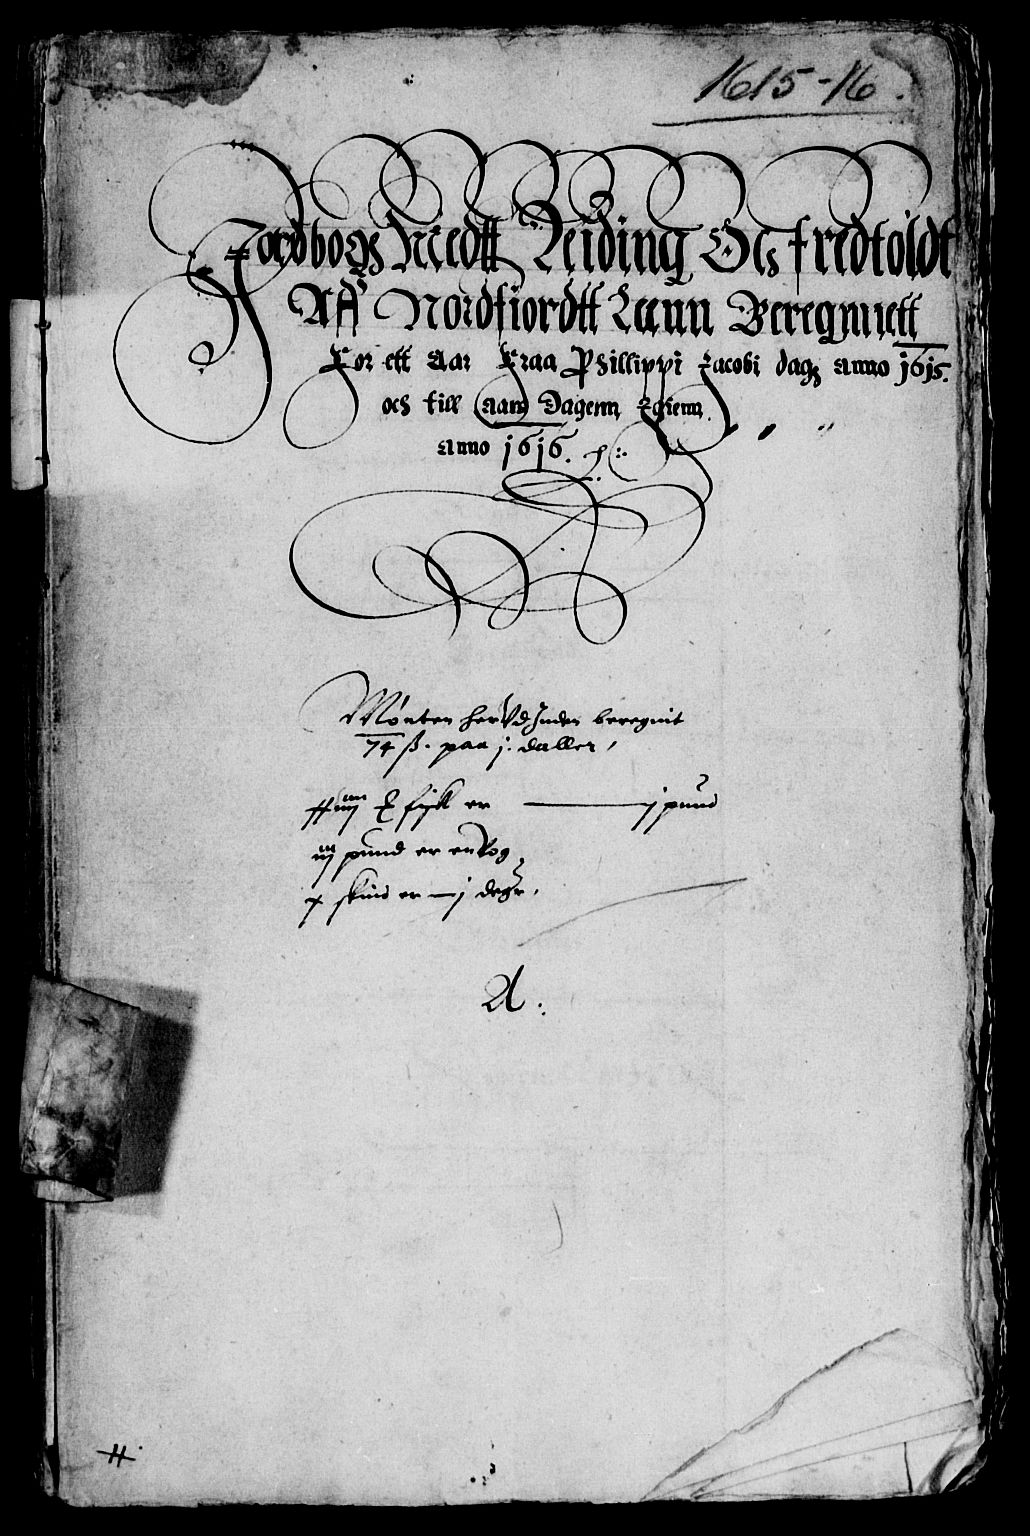 1615-16.
Jordbog Medtt Leiding Och fredtoldt
Aff Nordfiordtt Laenn Beregnnett
For ett Aar Fraa Phillippi Jacobi dag anno 1615.
och till Sam Dagenn Igienn
Anno 1616.
Mønten her Vdjnden beregnit
74 ß. paa j. daller,
fisk er j pund
iij pund er en Vog
x skind er j degr,
A.
H